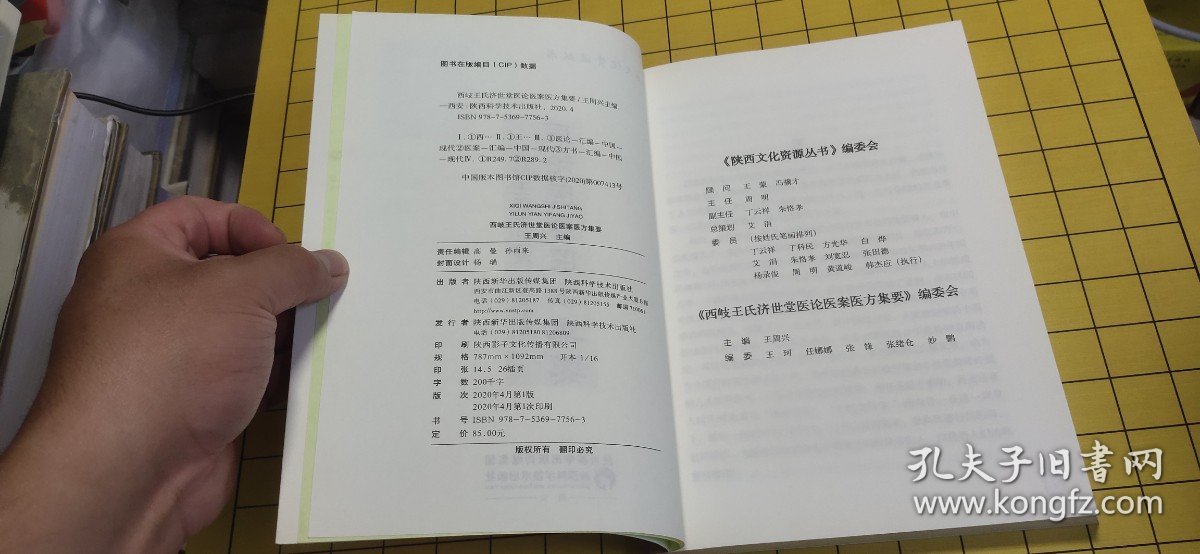 图书在版编目（CIP）数据
西岐王氏济世堂医论医案医方集要/王周兴主编
—西安：陕西科学技术出版社，2020.4
ISBN 978-7-5369-7756-3
Ⅰ.①西… Ⅱ.①王… Ⅲ.①医论—汇编—中国—
现代②医案—汇编—中国—现代③方书—汇编—中国
—现代Ⅳ.①R249.7②R289.2
中国版本图书馆CIP数据核字(2020)第007413号
XIQI WANGSHI JISHITANG
YILUN YIAN YIFANG JIYAO
西岐王氏济世堂医论医案医方集要
王周兴 主编
责任编辑 高 曼 孙雨来
封面设计 杨 瑞
出 版 者 陕西新华出版传媒集团 陕西科学技术出版社
西安市曲江新区登高路1388号陕西新华出版传媒产业大厦B座
电话（029）81205187 传真（029）81205155 邮编710061
http://www.snstp.com
发 行 者 陕西新华出版传媒集团 陕西科学技术出版社
电话（029）81205180 81206809
印 刷 陕西影子文化传播有限公司
规 格 787mm×1092mm 开本 1/16
印 张 14.5 26插页
字 数 200千字
版 次 2020年4月第1版
2020年4月第1次印刷
书 号 ISBN 978-7-5369-7756-3
定 价 85.00元
版权所有 翻印必究
《陕西文化资源丛书》编委会
顾 问 王 蒙 冯骥才
主 任 周 明
副主任 丁云祥 朱恪孝
总策划 艾 涓
委 员 （按姓氏笔画排列）
丁云祥 丁科民 方光华 白 烨
艾 涓 朱恪孝 刘宽忍 张田德
杨录俊 周 明 黄道峻 韩杰应（执行）
《西岐王氏济世堂医论医案医方集要》编委会
主 编 王周兴
编 委 王 珂 任娜娜 张 锋 张绪仓 妙 鹏
孔夫子旧書网
www.kongfz.com